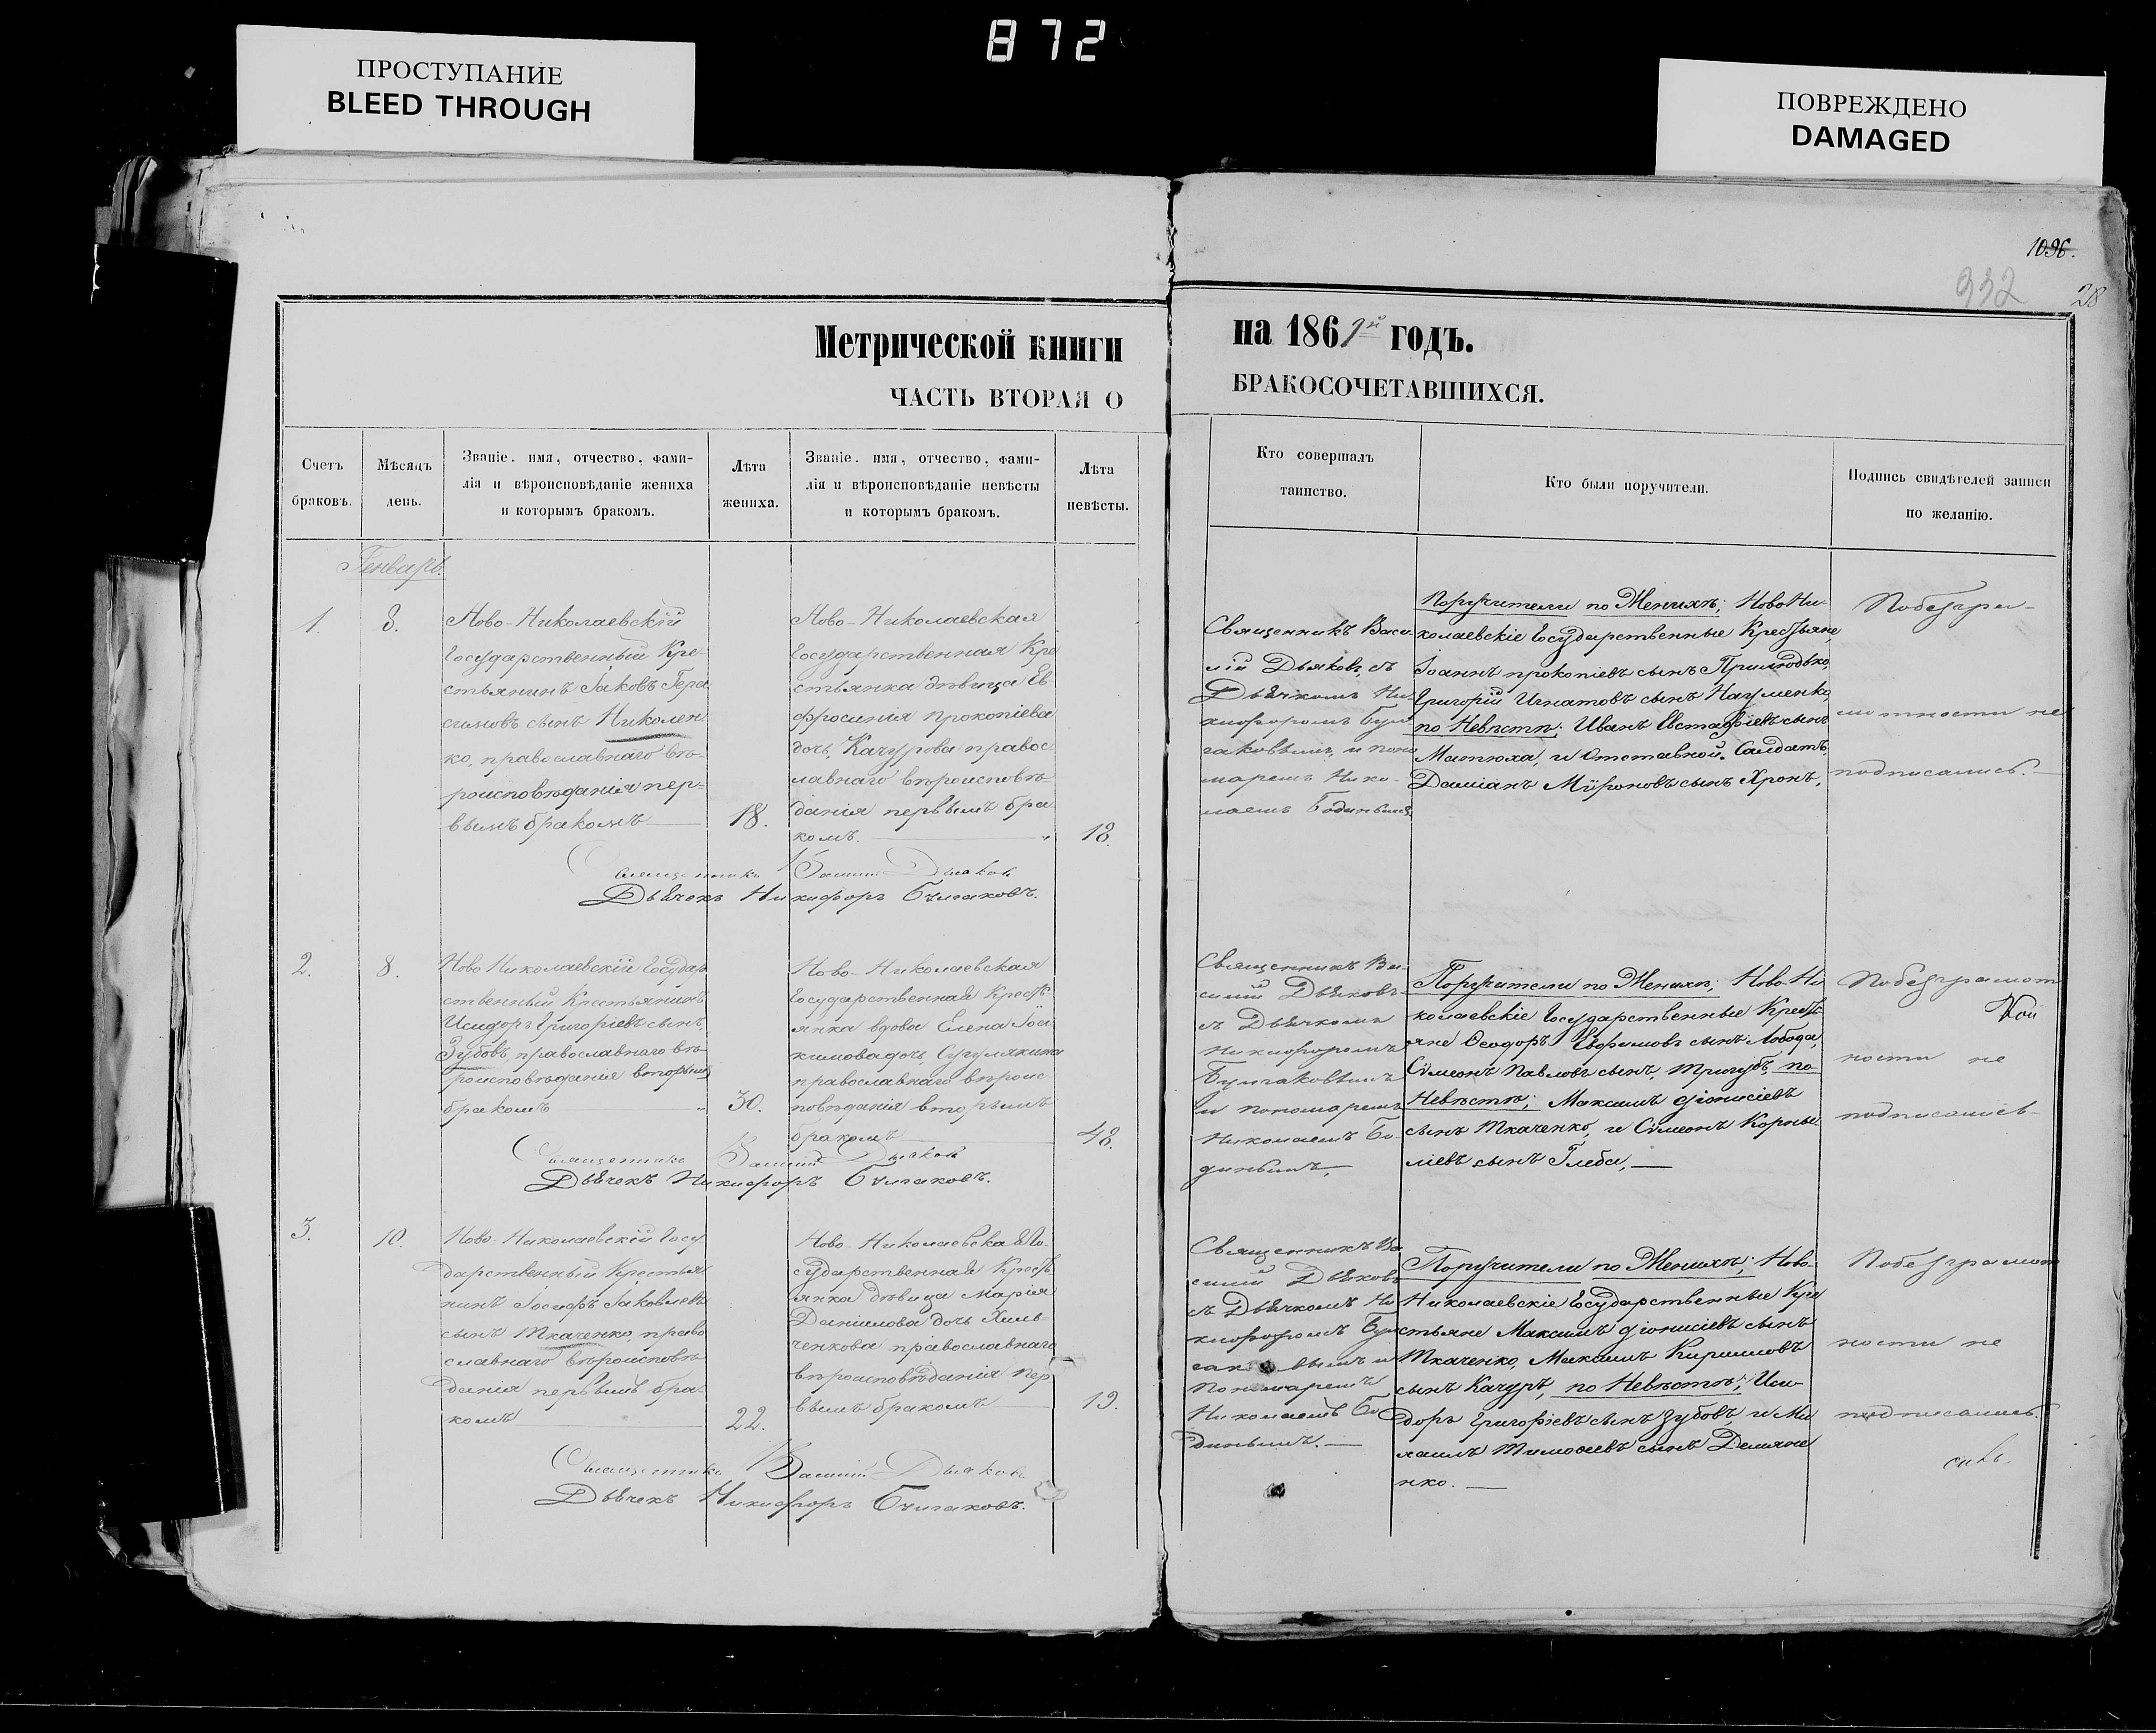 872
ПРОСТУПАНИЕ
BLEED THROUGH
ПОВРЕЖДЕНО
DAMAGED
1096.
932
28
Метрической книги
ЧАСТЬ ВТОРАЯ О
на 1861й годъ.
БРАКОСОЧЕТАВШИХСЯ.
Счетъ
браковъ.
Мѣсяцъ
день.
Званіе, имя, отчество, фами-
лія и вѣроисповѣданіе жениха
и которымъ бракомъ.
Лѣта
жениха.
Званіе, имя, отчество, фами-
лія и вѣроисповѣданіе невѣсты
и которымъ бракомъ.
Лѣта
невѣсты.
Кто совершалъ
таинство.
Кто были поручители.
Подпись свидѣтелей записи
по желанію.
Генварь.
1.
8.
Ново-Николаевскій
Государственный Кре-
стьянинъ Іаковъ Гера-
симовъ сынъ Николен
ко, православнаго вѣ-
роисповѣданія пер-
вымъ бракомъ
18.
Ново-Николаевская
Государственная Кре
стьянка дѣвица Ев
фросинія Прокопіева
дочь, Качурова правос
лавнаго вѣроисповѣ-
данія первымъ бра
комъ.
18.
Священникъ Васи-
лій Дьяковъ, съ
Дьячкомъ Ни-
кифоромъ Бул
гаковымъ, и поно
маремъ Нико-
лаемъ Бодинымъ
Поручители по Женихѣ; Ново Ни-
колаевскіе Государственные Крестьяне,
Іоаннъ Прокопіевъ сынъ Приходько,
Григорій Игнатовъ сынъ Науменко,
по Невѣстѣ; Иванъ Евстафіевъ сынъ
Матюха, и Отставной Салдатъ,
Даміанъ Мѵроновъ сынъ Хронъ,
Побезгра-
мотности не
подписались.
Священникъ Василій Дьяковъ
Дьячекъ Никифоръ Булгаковъ.
2.
8.
Ново Николаевскій Государ
ственный Крестьянинъ
Исидоръ Григоріевъ сынъ,
Зубовъ, православнаго вѣ-
роисповѣданія вторымъ
бракомъ
30.
Ново-Николаевская
Государственная Кресть
янка вдова Елена Іоа
кимова дочь,
православнаго вѣроис
повѣданія вторымъ
бракомъ
48.
Священникъ Ва-
силій Дьяковъ
съ Дьячкомъ
Никифоромъ
Булгаковымъ
и пономаремъ
Николаемъ Бо-
динымъ,
Поручители по Женихѣ; Ново-Ни
колаевскіе Государственные Кресть
яне Ѳеодоръ Евфимовъ сынъ Лобода,
Сѵмеонъ Павловъ сынъ, Тригубъ, по
Невѣстѣ; Максимъ Діонисіевъ
сынъ Ткаченко, и Сѵмеонъ Корни-
ліевъ сынъ Глеба,
Побезграмот
ности не
подписались
Священникъ Василій Дьяковъ
Дьячекъ Никифоръ Булгаковъ.
3.
10.
Ново-Николаевскій Госу
дарственный Крестья
нинъ Іосифъ Іаковлевъ
сынъ Ткаченко, право
славнаго вѣроисповѣ
данія первымъ бра
комъ
22.
Ново-Николаевская Го-
сударственная Кресть
янка дѣвица Марія
Даніилова дочь Хиль-
ченкова православнаго
вѣроисповѣданія пер
вымъ бракомъ
19.
Священникъ Ва
силій Дьяковъ
съ Дьячкомъ Ни
кифоромъ Бул
гаковымъ и
Пономаремъ
Николаемъ Бо
динымъ.
Поручители по Женихѣ; Ново-
Николаевскіе Государственные Кре
стьяне Максимъ Діонисіевъ сынъ
Ткаченко, Максимъ Кириловъ
сынъ Качуръ, по Невѣстѣ; Иси
доръ Григоріевъ сынъ Зубовъ, и Ми
хаилъ Тимоѳеевъ сынъ Демяне
нко.
Побезграмот
ности не
подписались.
Священникъ Василій Дьяковъ
Дьячекъ Никифоръ Булгаковъ.